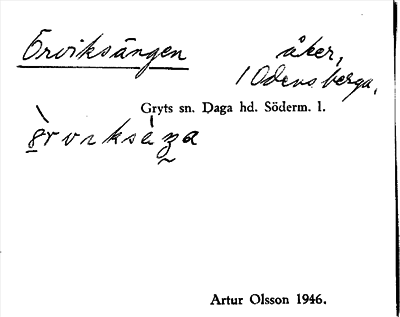 Örviksängen åker,
1 Odensberga.
Gryts sn. Daga hd. Söderm. l.
Artur Olsson 1946.